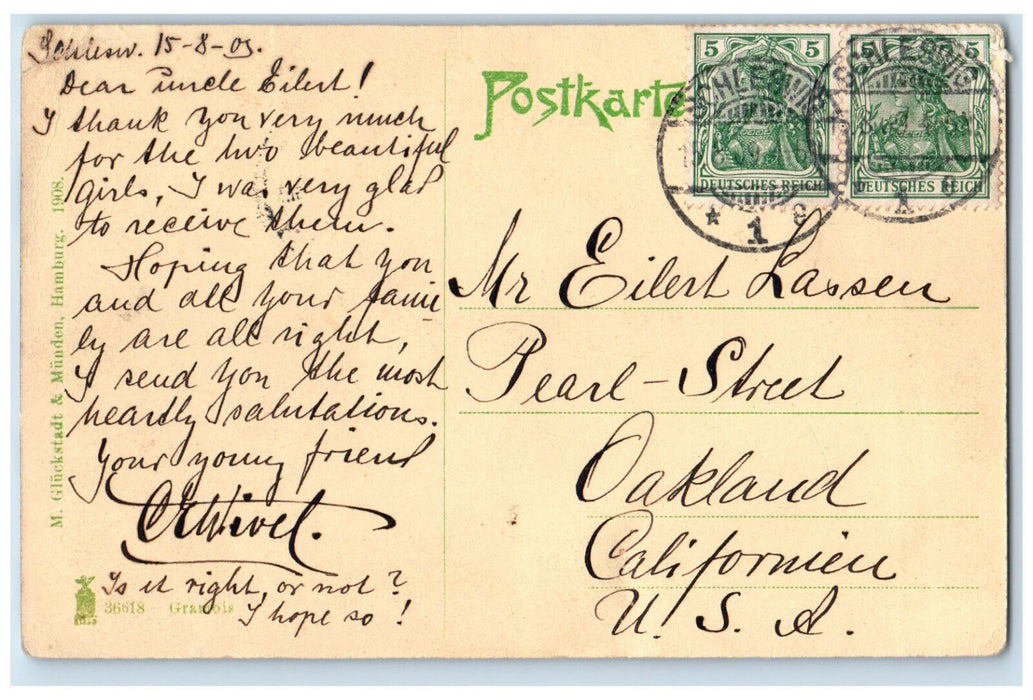 Schlesw. 15-8-09.
Dear uncle Eilert!
I thank you very much
for the two beautiful
girls, I was very glad
to receive them.
Hoping that you
and all your fami
ly are all right,
I send you the most
heartly salutations.
Your young friend
Is it right, or not?
I hope so!
M. Glückstadt & Münden, Hamburg. 1908.
36618 Gramols
Postkarte
5 5
DEUTSCHES REICH
5 5
DEUTSCHES REICH
SCHLESWIG
* 1 c
SCHLESWIG
1 c
Mr Eilert Lassen
Pearl-Street
Oakland
Californien
U. S. A.